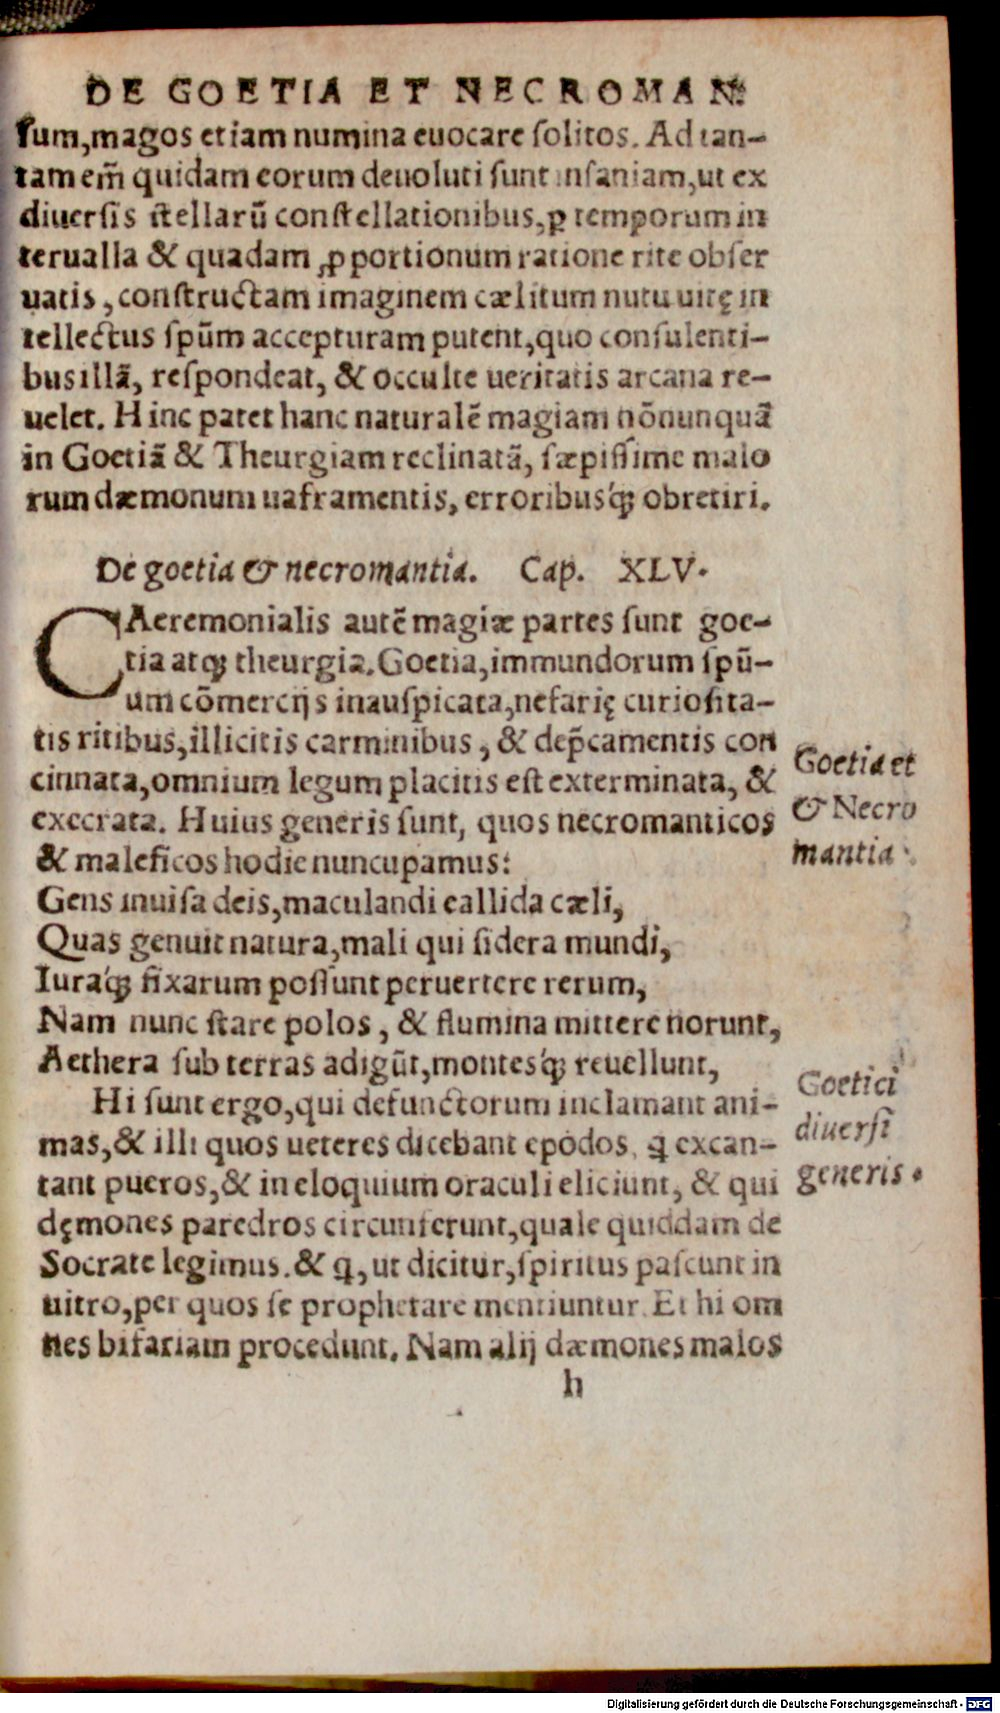 DE GOETIA ET NECROMAN.
ſum,magos etiam numina euocare ſolitos. Ad tan-
tam em̃ quidam eorum deuoluti ſunt inſaniam,ut ex
diuerſis ſtellarũ conſtellationibus,ꝑ temporum in
terualla & quadam ꝓportionum ratione rite obſer
uatis, conſtructam imaginem cælitum nutu uitę in
tellectus ſpũm accepturam putent,quo conſulenti-
bus illã, reſpondeat, & occulte ueritatis arcana re-
uelet. Hinc patet hanc naturalẽ magiam nõnunquã
in Goetiã & Theurgiam reclinatã, ſæpiſſime malo
rum dæmonum uaframentis, erroribusq́; obretiri.
De goetia & necromantia. Cap. XLV.
CAeremonialis autẽ magiæ partes ſunt goe-
tia atq; theurgia. Goetia,immundorum ſpũ-
um cõmercijs inauſpicata,nefarię curioſita-
tis ritibus,illicitis carminibus, & dep̃camentis con
cinnata,omnium legum placitis eſt exterminata, &
execrata. Huius generis ſunt, quos necromanticos
& maleficos hodie nuncupamus:
Gens inuiſa deis,maculandi callida cæli,
Quas genuit natura,mali qui ſidera mundi,
Iuraq́; fixarum poſſunt peruertere rerum,
Nam nunc ſtare polos, & flumina mittere norunt,
Aethera ſub terras adigũt,montesq́; reuellunt,
Hi ſunt ergo,qui defunctorum inclamant ani-
mas,& illi quos ueteres dicebant epodos, q̃ excan-
tant pueros,& in eloquium oraculi eliciunt, & qui
dęmones paredros circunferunt,quale quiddam de
Socrate legimus. & q̃,ut dicitur,ſpiritus paſcunt in
uitro,per quos ſe prophetare mentiuntur. Et hi om
nes bifariam procedunt. Nam alij dæmones malos
h
Goetia et
& Necro
mantia.
Goetici
diuerſi
generis.
Digitalisierung gefördert durch die Deutsche Forschungsgemeinschaft - DFG